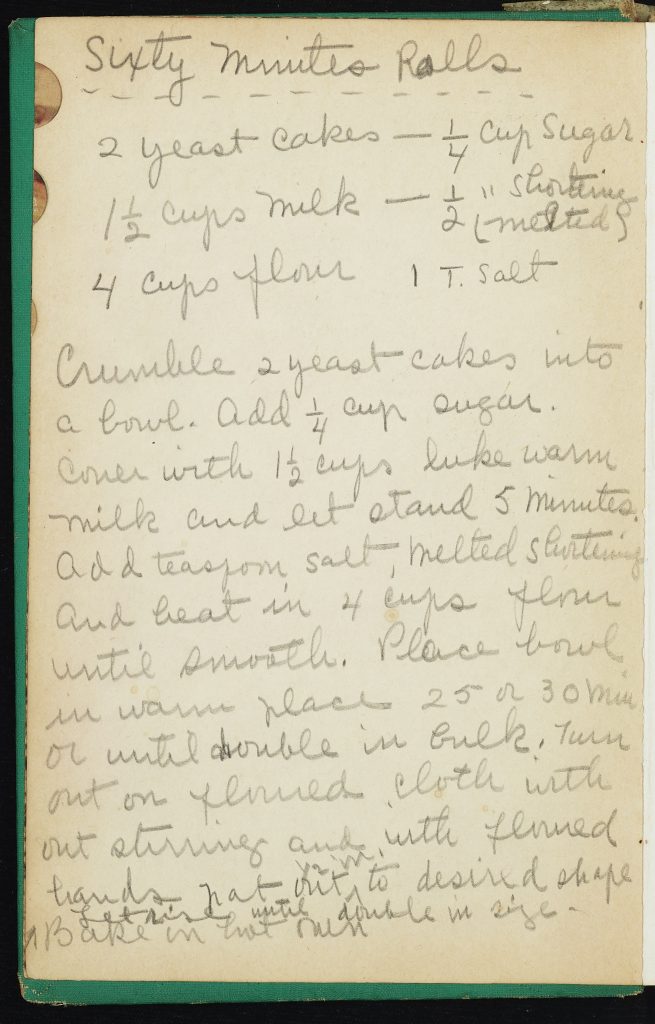 Sixty Minutes Rolls
2 yeast cakes — 1/4 cup Sugar
1 1/2 cups milk — 1/2 " shortening
(melted)
4 cups flour 1 T. salt
Crumble 2 yeast cakes into
a bowl. Add 1/4 cup sugar.
Cover with 1 1/2 cups luke warm
milk and let stand 5 minutes.
Add teaspoon salt, melted shortening
and beat in 4 cups flour
until smooth. Place bowl
in warm place 25 or 30 min
or until double in bulk. Turn
out on floured cloth with
out stirring and with floured
1/2 in.
hands pat out to desired shape
Let rise until double in size -
Bake in hot oven